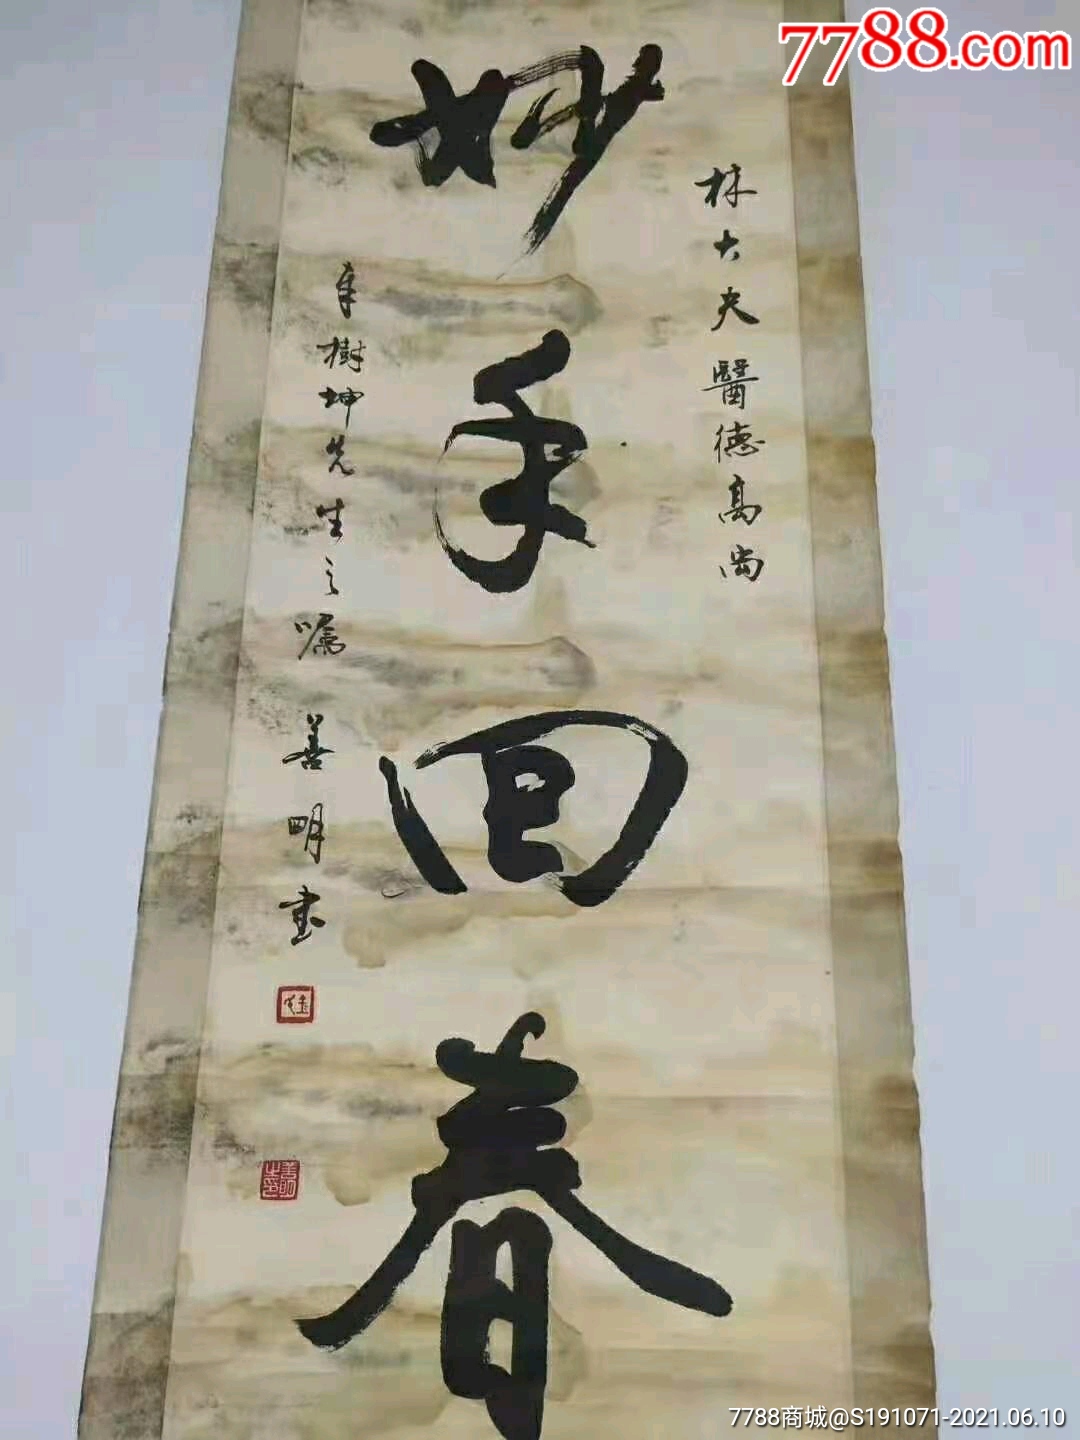 7788.com
林大夫醫德高尚
妙手回春
樹坤先生之嘱
善明書
善明
7788商城@S191071-2021.06.10